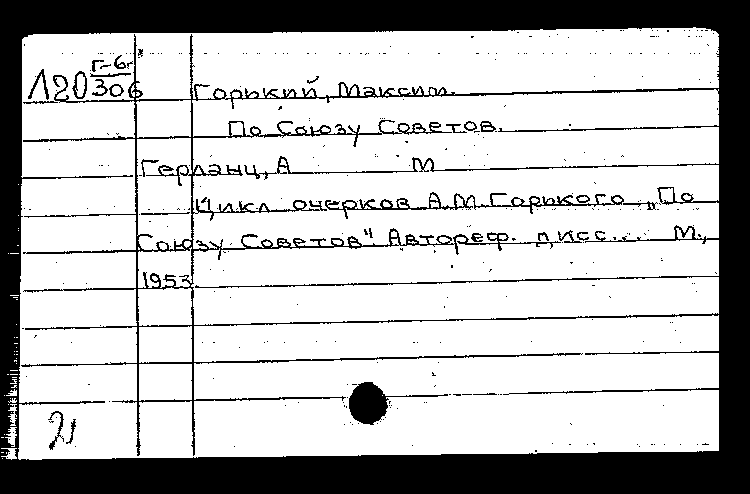 Г-6г
120 306
Горький, Максим.
По Союзу Советов.
Герланц, А М
Цикл очерков А.М. Горького „По
Союзу Советов" Автореф. дисс... М.,
1953.